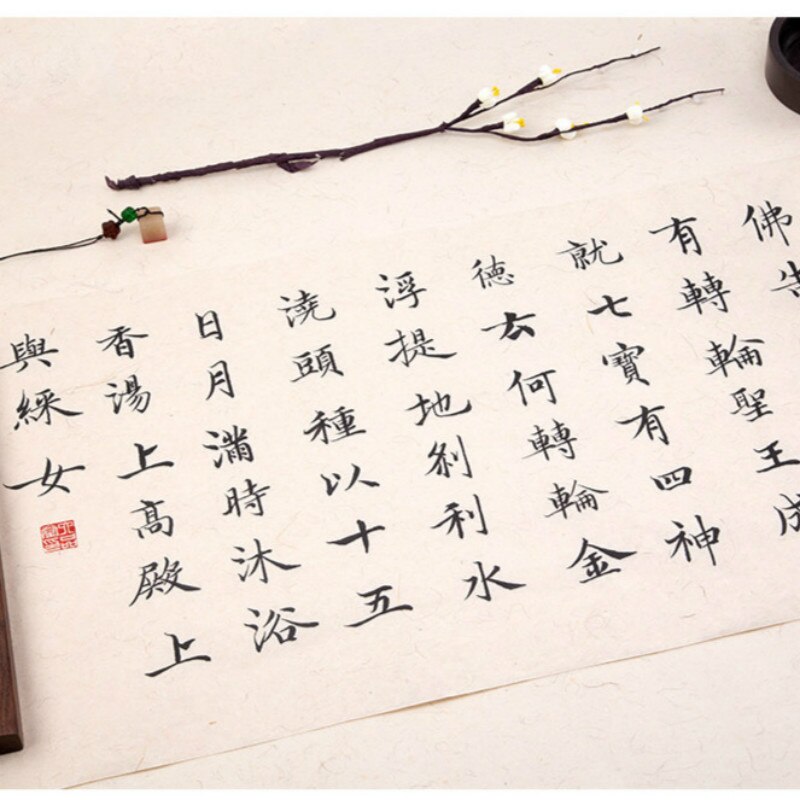 佛告
有轉輪聖王成
就七寶有四神
德云何轉輪金
浮提地剎利水
澆頭種以十五
日月滿時沐浴
香湯上高殿上
與綵女